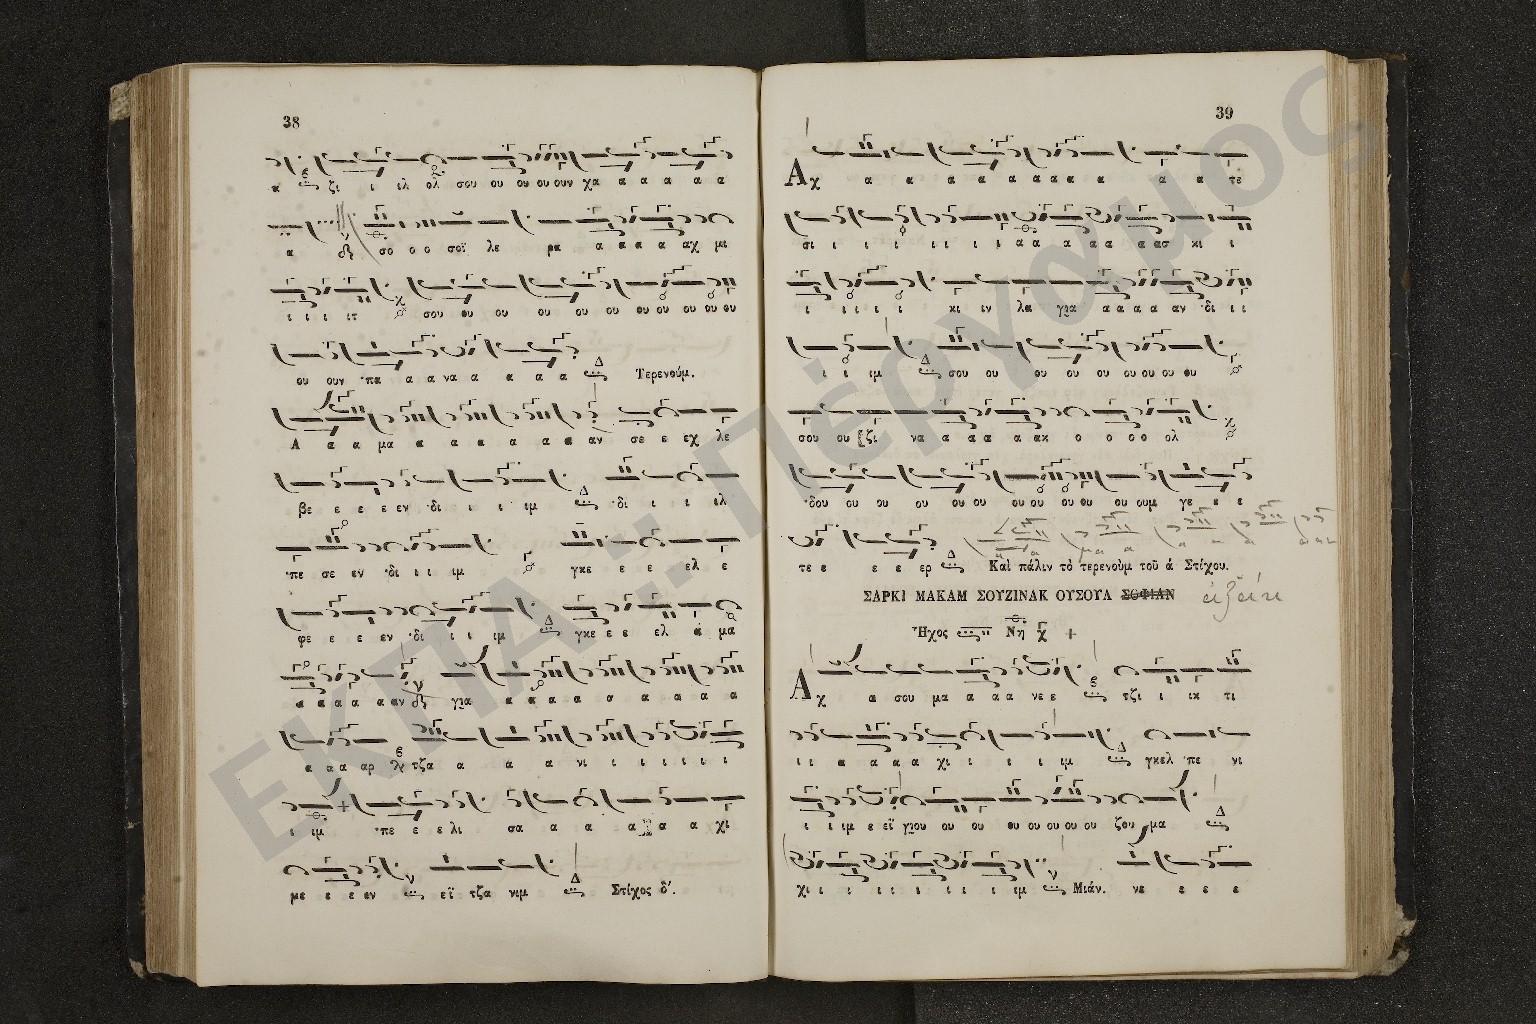 38
α ζι ι ιλ ολ σου ου ου ου ουν χα α α α α α
α σο ο ο σοϊ λε ρα α α α α αχ μι
ι ι ι ιτ σου ου ου ου ου ου ου ου ου ου
ου ουν ·πα α α να α α α α Τερενούμ.
Α α α μα α α α α α α α αν σε ε εχ λε
βε ε ε ε εν ·δι ι ι ιμ ·δι ι ι ιλ
·πε σε εν ·δι ι ι ιμ γκε ε ε ελ ε
φε ε ε εν ·δι ι ι ιμ γκε ε ε ελ ά μα
α α α α α αν για α α α α α α α α
α α α αρ τζα α α α νι ι ι ι ι ι ι
ι ιμ ·πε ε ε λι σα α α α α α χι
με ε ε εν εϊ τζα νιμ Στίχος δ'.
39
Αχ α α α α α α α α α α α τε
σι ι ι ι ι ι ι ι α α α α α α ασ κι ι
ι ι ι ι ι κι ιν λα για α α α α αν ·δι ι ι
ι ι ιμ σου ου ου ου ου ου ου ου ου
σου ου ζι να α α α α ακ ο ο ο ο ολ
·δου ου ου ου ου ου ου ου ου ου ου ουμ γε ε ε
τε ε ε ε ερ Καὶ πάλιν τὸ τερενοὺμ τοῦ ά Στίχου.
ΣΑΡΚΙ ΜΑΚΑΜ ΣΟΥΖΙΝΑΚ ΟΥΣΟΥΛ ΣΟΦΙΑΝ
Ἦχος Νη
Αχ α σου μα α α α νε ε τζι ι ικ τι
ι ι α α α α χι ι ι ι ιμ γκελ ·πε νι
ι ι ιμ ε εϊ γιου ου ου ου ου ου ου ου ζου μα
χι ι ι ι ι ι ι ι ι ιμ Μιάν. νε ε ε ε
ΕΚΠΑ :: Πέργαμος